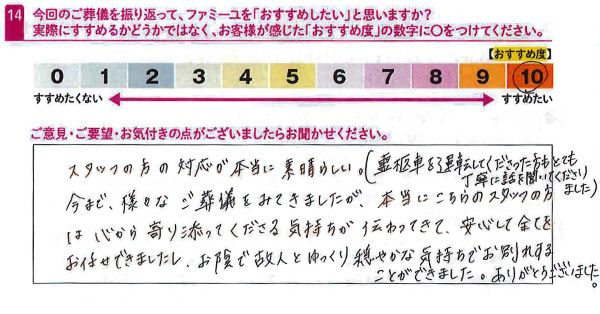 14 今回のご葬儀を振り返って、ファミーユを「おすすめしたい」と思いますか?
実際にすすめるかどうかではなく、お客様が感じた「おすすめ度」の数字に○をつけてください。
【おすすめ度】
0 1 2 3 4 5 6 7 8 9 10
すすめたくない すすめたい
ご意見・ご要望・お気付きの点がございましたらお聞かせください。
スタッフの方の対応が本当に素晴らしい。(霊柩車を運転してくださった方もとても
丁寧に話を聞いてくださり
ました)
今まで、様々なご葬儀をみてきましたが、本当にこちらのスタッフの方
は心から寄り添ってくださる気持ちが伝わってきて、安心して全てを
お任せできましたし、お陰で故人とゆっくり穏やかな気持ちでお別れする
ことができました。ありがとうございました。